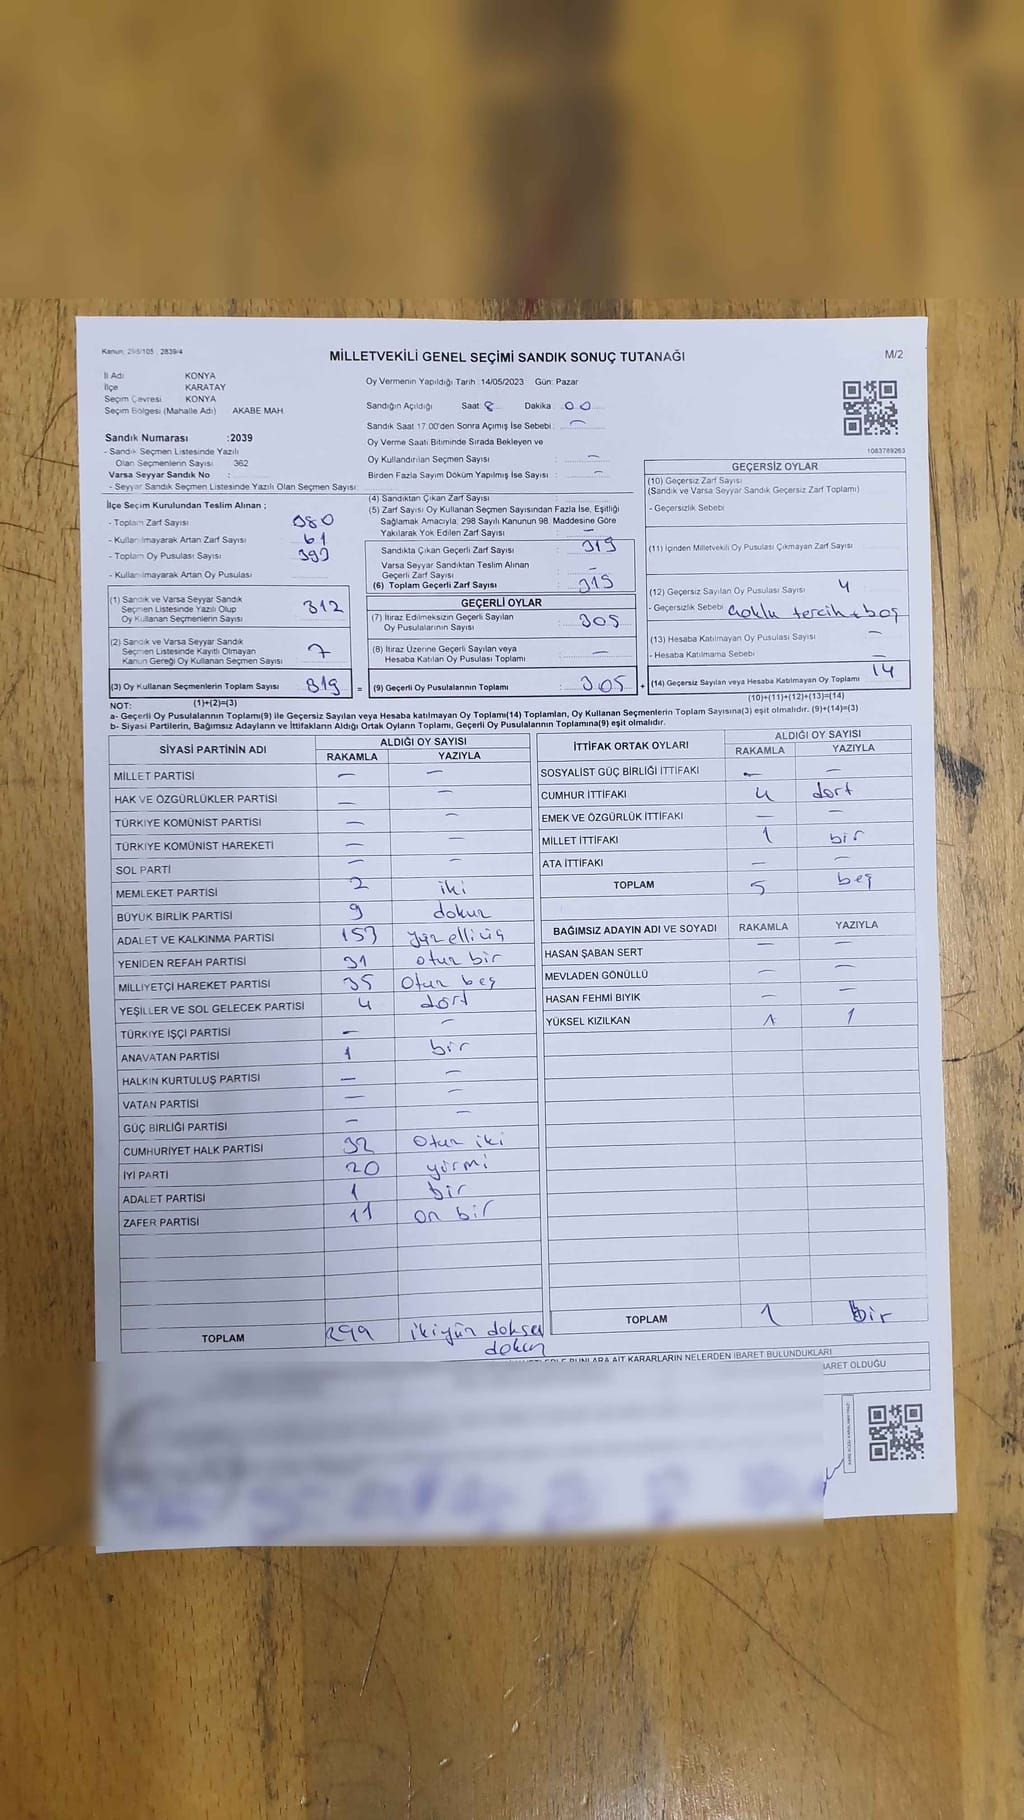 Kanun: 298/105 , 2839/4
MİLLETVEKİLİ GENEL SEÇİMİ SANDIK SONUÇ TUTANAĞI
M/2
İl Adı KONYA
İlçe KARATAY
Seçim Çevresi KONYA
Seçim Bölgesi (Mahalle Adı) AKABE MAH.
Oy Vermenin Yapıldığı Tarih :14/05/2023 Gün: Pazar
Sandığın Açıldığı Saat: 8 Dakika : 00
Sandık Saat 17.00'den Sonra Açımış İse Sebebi : —
Oy Verme Saati Bitiminde Sırada Bekleyen ve
Oy Kullandırılan Seçmen Sayısı : —
Birden Fazla Sayım Döküm Yapılmış İse Sayısı : —
1083789263
Sandık Numarası :2039
- Sandık Seçmen Listesinde Yazılı
Olan Seçmenlerin Sayısı 362
Varsa Seyyar Sandık No :
- Seyyar Sandık Listesinde Yazılı Olan Seçmen Sayısı:
İlçe Seçim Kurulundan Teslim Alınan ;
- Toplam Zarf Sayısı 080
- Kullanılmayarak Artan Zarf Sayısı 61
- Toplam Oy Pusulası Sayısı 393
- Kullanılmayarak Artan Oy Pusulası
(1) Sandık ve Varsa Seyyar Sandık
Seçmen Listesinde Yazılı Olup
Oy Kullanan Seçmenlerin Sayısı 312
(2) Sandık ve Varsa Seyyar Sandık
Seçmen Listesinde Kayıtlı Olmayan
Kanun Gereği Oy Kullanan Seçmen Sayısı 7
(3) Oy Kullanan Seçmenlerin Toplam Sayısı 319 =
(4) Sandıktan Çıkan Zarf Sayısı :
(5) Zarf Sayısı Oy Kullanan Seçmen Sayısından Fazla İse, Eşitliği
Sağlamak Amacıyla, 298 Sayılı Kanunun 98. Maddesine Göre
Yakılarak Yok Edilen Zarf Sayısı : —
Sandıkta Çıkan Geçerli Zarf Sayısı : 319
Varsa Seyyar Sandıktan Teslim Alınan
Geçerli Zarf Sayısı : —
(6) Toplam Geçerli Zarf Sayısı : 319
GEÇERLİ OYLAR
(7) İtiraz Edilmeksizin Geçerli Sayılan
Oy Pusulalarının Sayısı : 305
(8) İtiraz Üzerine Geçerli Sayılan veya
Hesaba Katılan Oy Pusulası Toplamı : —
(9) Geçerli Oy Pusulalarının Toplamı : 305 +
GEÇERSİZ OYLAR
(10) Geçersiz Zarf Sayısı
(Sandık ve Varsa Seyyar Sandık Geçersiz Zarf Toplamı)
- Geçersizlik Sebebi
(11) İçinden Milletvekili Oy Pusulası Çıkmayan Zarf Sayısı
(12) Geçersiz Sayılan Oy Pusulası Sayısı 4
- Geçersizlik Sebebi çoklu tercih + boş
(13) Hesaba Katılmayan Oy Pusulası Sayısı —
- Hesaba Katılmama Sebebi —
(14) Geçersiz Sayılan veya Hesaba Katılmayan Oy Toplamı 14
NOT: (1)+(2)=(3)
(10)+(11)+(12)+(13)=(14)
a- Geçerli Oy Pusulalarının Toplamı(9) ile Geçersiz Sayılan veya Hesaba katılmayan Oy Toplamı(14) Toplamları, Oy Kullanan Seçmenlerin Toplam Sayısına(3) eşit olmalıdır. (9)+(14)=(3)
b- Siyasi Partilerin, Bağımsız Adayların ve İttifakların Aldığı Ortak Oyların Toplamı, Geçerli Oy Pusulalarının Toplamına(9) eşit olmalıdır.
SİYASİ PARTİNİN ADI ALDIĞI OY SAYISI
RAKAMLA YAZIYLA
MİLLET PARTİSİ — —
HAK VE ÖZGÜRLÜKLER PARTİSİ — —
TÜRKİYE KOMÜNİST PARTİSİ — —
TÜRKİYE KOMÜNİST HAREKETİ — —
SOL PARTİ — —
MEMLEKET PARTİSİ 2 iki
BÜYÜK BİRLİK PARTİSİ 9 dokuz
ADALET VE KALKINMA PARTİSİ 153 yüzelliüç
YENİDEN REFAH PARTİSİ 31 otuz bir
MİLLİYETÇİ HAREKET PARTİSİ 35 Otuz beş
YEŞİLLER VE SOL GELECEK PARTİSİ 4 dört
TÜRKİYE İŞÇİ PARTİSİ — —
ANAVATAN PARTİSİ 1 bir
HALKIN KURTULUŞ PARTİSİ — —
VATAN PARTİSİ — —
GÜÇ BİRLİĞİ PARTİSİ — —
CUMHURİYET HALK PARTİSİ 32 Otuz iki
İYİ PARTİ 20 yirmi
ADALET PARTİSİ 1 bir
ZAFER PARTİSİ 11 on bir
TOPLAM 299 ikiyüz doksan
dokuz
İTTİFAK ORTAK OYLARI ALDIĞI OY SAYISI
RAKAMLA YAZIYLA
SOSYALİST GÜÇ BİRLİĞİ İTTİFAKI — —
CUMHUR İTTİFAKI 4 dört
EMEK VE ÖZGÜRLÜK İTTİFAKI — —
MİLLET İTTİFAKI 1 bir
ATA İTTİFAKI — —
TOPLAM 5 beş
BAĞIMSIZ ADAYIN ADI VE SOYADI RAKAMLA YAZIYLA
HASAN ŞABAN SERT — —
MEVLADEN GÖNÜLLÜ — —
HASAN FEHMİ BIYIK — —
YÜKSEL KIZILKAN 1 1
TOPLAM 1 bir
BUNLARA AİT KARARLARIN NELERDEN İBARET BULUNDUKLARI
BARET OLDUĞU